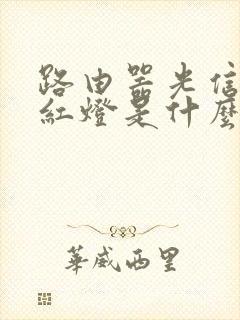 路由器光信
紅燈是什麼
華威西里